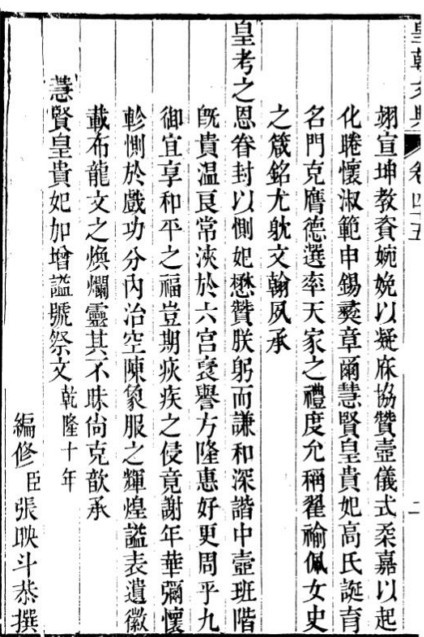 皇朝文典
卷四十五
二
翊宣坤教資婉娩以凝庥協贊壼儀式柔嘉以起
化睠懷淑範申錫彝章爾慧賢皇貴妃高氏誕育
名門克膺德選率天家之禮度允稱翟褕佩女史
之箴銘尤躭文翰夙承
皇考之恩眷封以側妃懋贊朕躬而謙和深諧中壼班階
旣貴溫良常浹於六宮襃譽方隆惠好更周乎九
御宜享和平之福豈期疢疾之侵竟謝年華彌懷
軫惻於戲功分內治空陳象服之輝煌謚表遺徽
載布龍文之煥爛靈其不昧尙克歆承
慧賢皇貴妃加增謚號祭文 乾隆十年
編修臣張映斗恭撰